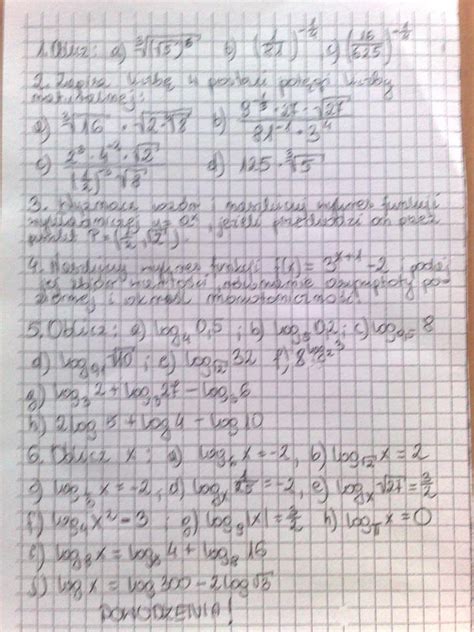 1. Oblicz: a) ∛(√5)⁶ b) (1/81)^(-1/4) c) (16/625)^(-1/4)
2. Zapisz liczbę w postaci potęgi liczby
naturalnej:
a) ∛16 · √2 · b) · 27 · √27 / 81⁻¹ · 3⁴
c) 2³ · 4⁻² · √2 / (1/2)⁻³ · √8 d) 125 · ∛5
3. wzór i narysuj wykres funkcji
wykładniczej y = aˣ, jeżeli przechodzi on przez
punkt P = (1/2, √2).
4. Narysuj wykres funkcji f(x) = 3ˣ⁺¹ - 2 i podaj
jej zbiór wartości, równanie asymptoty po-
ziomej i określ monotoniczność.
5. Oblicz: a) log₄ 0,5; b) log₅ 0,2; c) log₀,₅ 8
d) log₀,₁ √10; e) log_√2 32 f) 8^(log₂ 3)
g) log₃ 2 + log₃ 27 - log₃ 6
h) 2 log 5 + log 4 - log 10
6. Oblicz x: a) x = -2, b) log_√2 x = 2
c) x = -2, d) logₓ 1/25 = -2, e) logₓ √27 = 3/2
f) log₄ x² = 3; g) log₉ |x| = 3/2 h) x = 0
log₈ x = log₈ 4 + log₈ 16
log x = log 300 - 2 log √3
POWODZENIA!